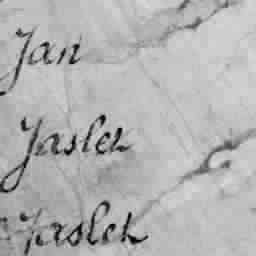 Jan
Jaslek
Jaslek